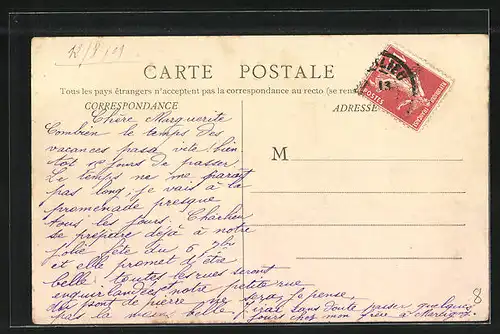 12/8/09
CARTE POSTALE
Tous les pays étrangers n'acceptent pas la correspondance au recto (se ren
CORRESPONDANCE
ADRESSE
M
POSTES
13
Chère Marguerite
Combien le temps des
vacances passe vite! bien
tot jours de passer.
Le temps ne me parait
pas long, je vais à la
promenade presque
tous les jours. Charlieu
se prépare déjà à notre
jolie fête du 6 7bre
et elle promet d'être
belle toutes les rues seront
enguirlandées notre petite rue
du pont de pierre ne
sera je pense,
pas la moins belle
irai sans doute passer quelques
jours chez mon frère à
8